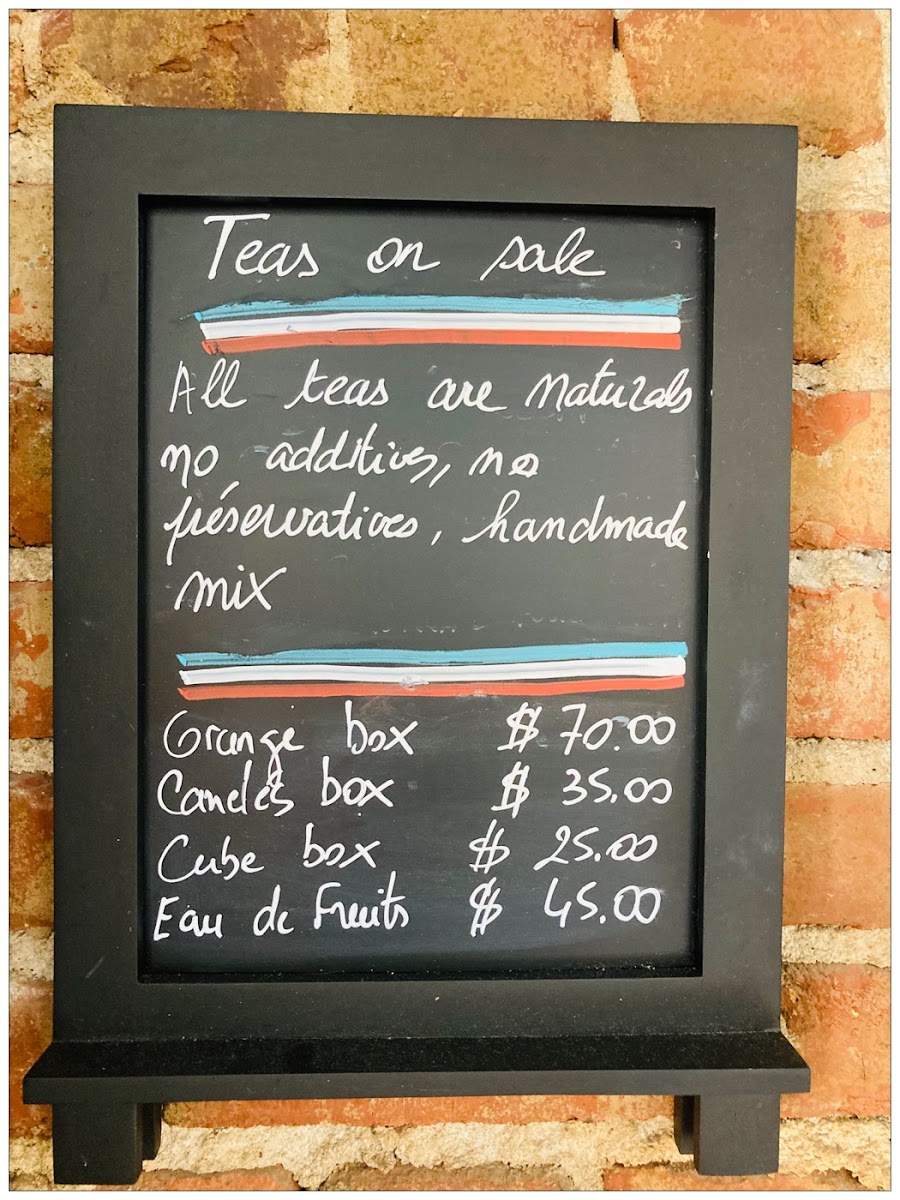 Teas on sale
All teas are naturals
no additives, no
préservatives, handmade
mix
Orange box $ 70.00
Canelés box $ 35.00
Cube box $ 25.00
Eau de Fruits $ 45.00